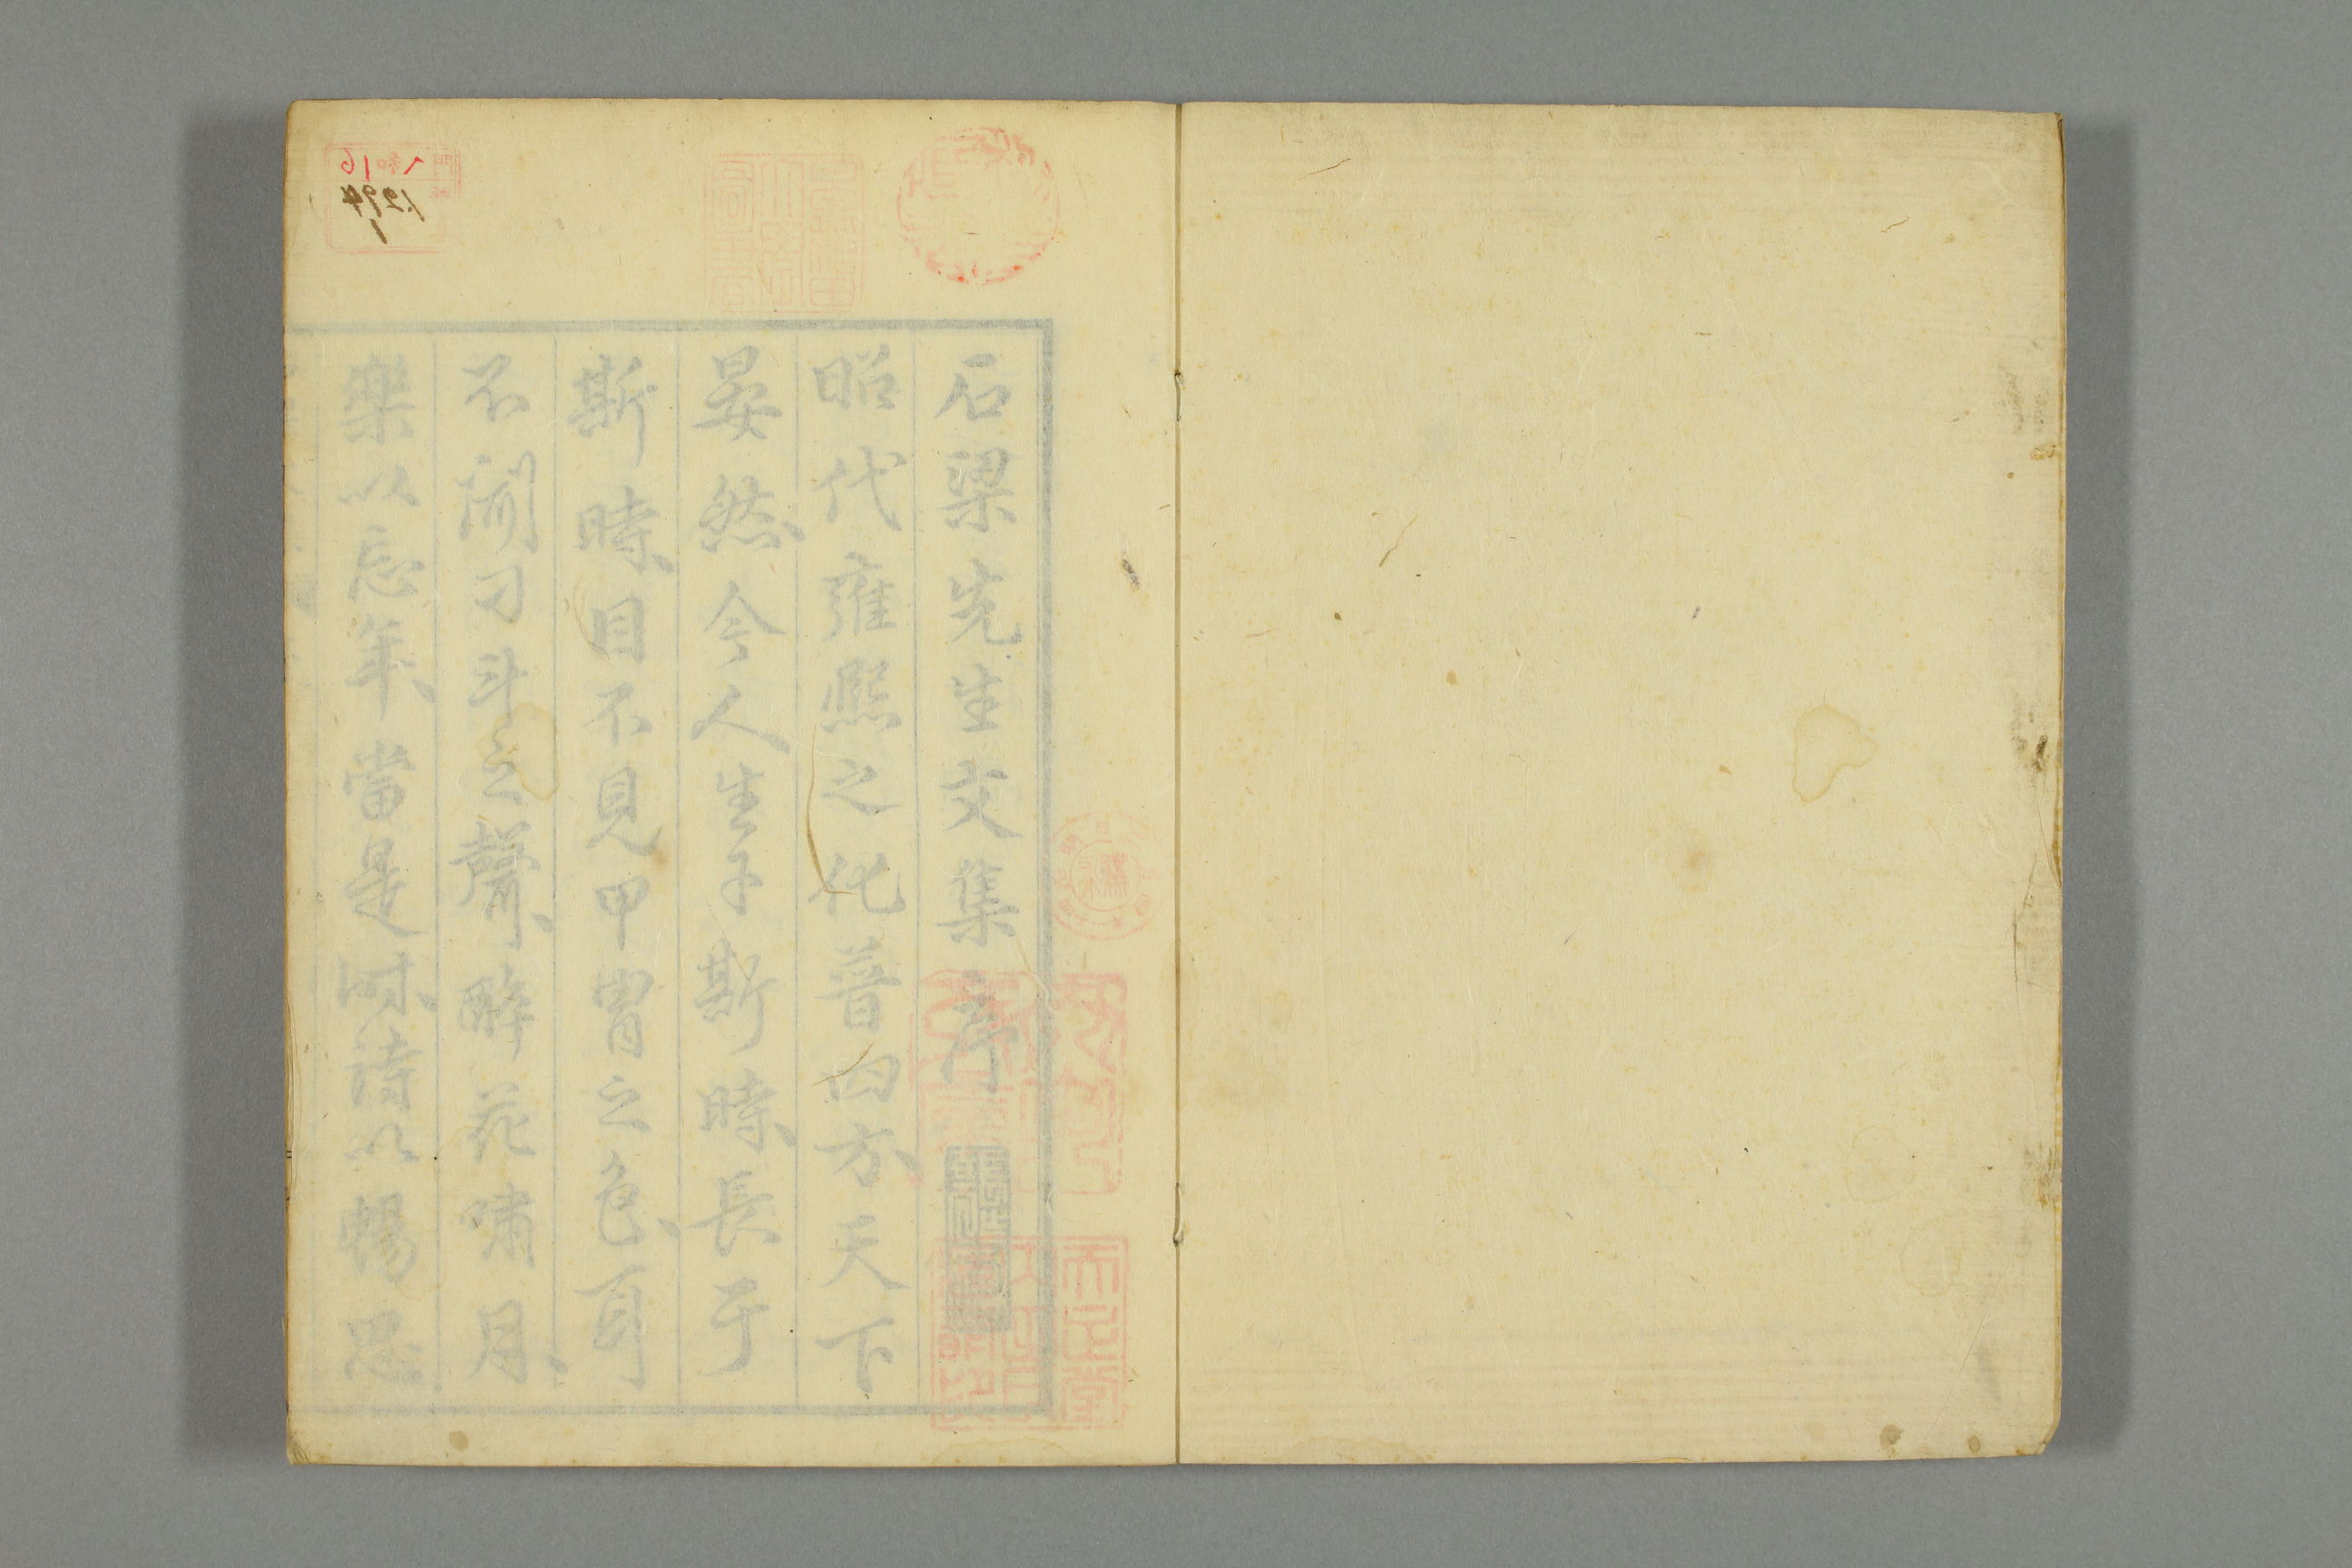 石梁先生文集序
昭代雍熙之化普四方天下
晏然今人生于斯時長于
斯時目不見甲冑之色耳
不聞刁斗之聲醉花嘯月
樂以忘年當是时詩以暢思
16
1294
1